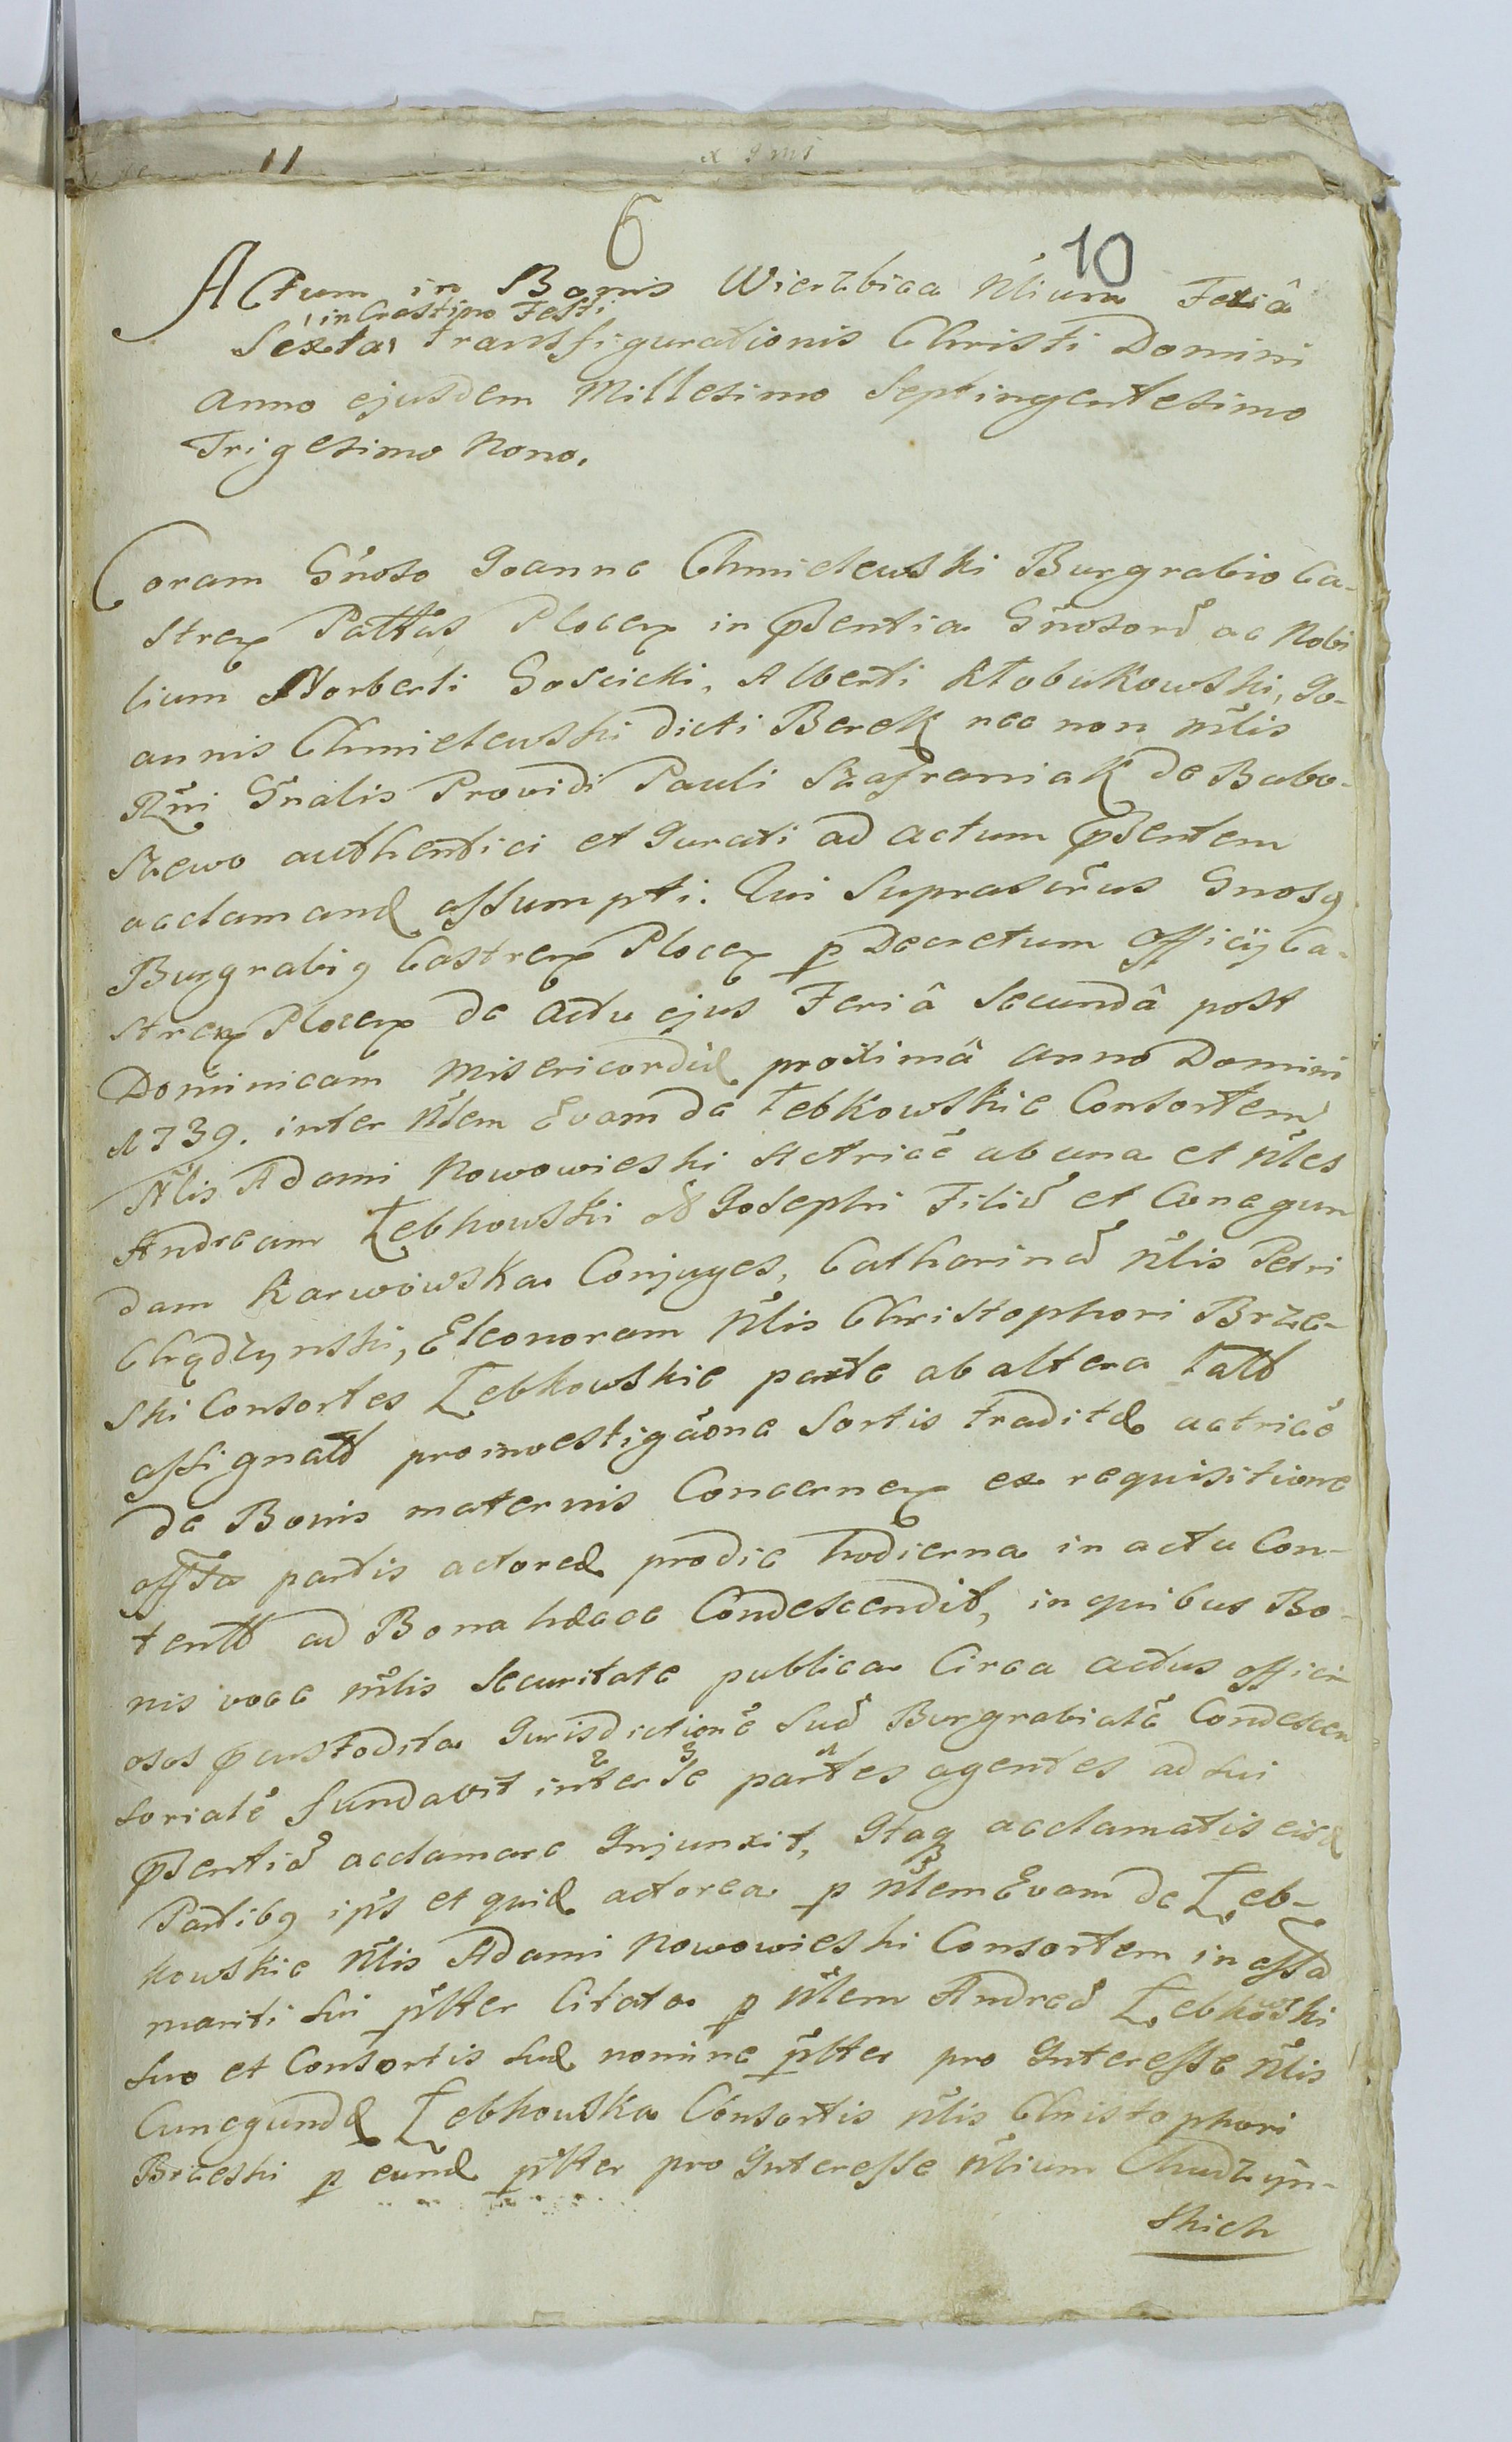 11
6
10
Actum in Bonis Wierzbica Nlium Feriâ
in Crastino Festi
Sexta, Transfigurationis Christi Domini
anno ejusdem Millesimo Septingentesimo
Trigesimo Nono.
Coram Gnoso Joanne Chmielewski Burgrabio Ca-
stren Pattus Plocen in pSentia Gnosorū ac Nobi
lium Norberti Goscicki, Alberti Kłobukowski, Jo-
annis Chmielewski dicti Berek nec non Mlis
Rgni Gnalis Providi Pauli Szafraniak de Babo-
szewo authentici et Jurati ad actum pSentem
acclamand assumpti. Qui Suprascrus Gnosg
Burgrabig Castren Plocen p Decretum officÿ Ca-
stren Plocen de Actu ejus Feriâ Secundâ post
Dominicam Misericordiæ proximâ anno Domini
1739. inter Nlem Evam de Łebkowskie Consortem
Nlis Adami Nowowieski Actricē ab una et Nles
Andream Łebkowski Josephi Filiū et Cunegun
dam Karwowska Conjuges, Catharinā Nlis Petri
Chądzynski, Eleonoram Nlis Christophori Brze-
ski Consortes Łebkowskie parte ab altera latū
assignatū pro investigaōne Sortis traditæ actricē
de Bonis maternis Concernen ex requisitione
offsa partis actoreæ prodie hodierna in actu Con-
tentū ad Bona hæcce Condescendit, in quibus Bo-
nis voce Mlis Securitate publica Circa actus offici-
osos pcustodita Jurisdictionē Suā Burgrabialē Condescen
sorialē fundavit inter Se partes agentes ad sui
2 3 1
pSentiā acclamare Injunxit, Itaq acclamatis eisd
Partibg ipĩs et quid actorea p Nlem Evam de Łeb-
kowskie Nlis Adami Nowowieski Consortem in assa
mariti sui pltter Citata p Nlem Andreā Łebkowski
suo et Consortis suæ nomine pltter pro Interesse Nlis
Cunegundæ Łebkowska Consortis Nlis Christophori
Brzeski p eund pltter pro Interesse Nlium Chudzyn-
skich